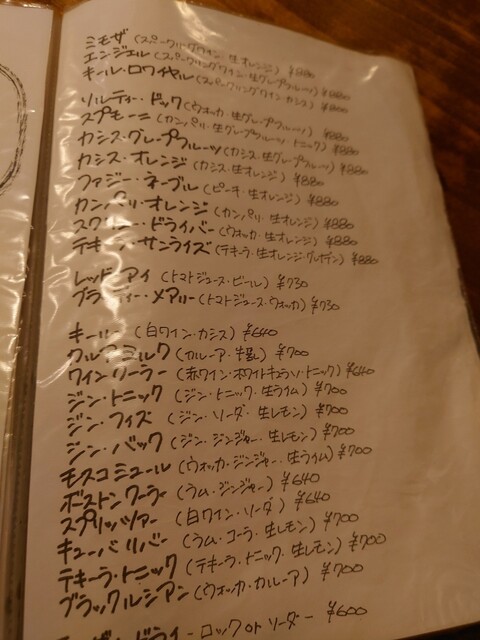 ミモザ (スパークリングワイン・生オレンジ) ¥880
エンジェル (スパークリングワイン・生グレープフルーツ) ¥880
キール・ロワイヤル (スパークリングワイン・カシス) ¥800
ソルティー・ドッグ (ウォッカ・生グレープフルーツ) ¥880
スプモーニ (カンパリ・生グレープフルーツ・トニック) ¥880
カシス・グレープフルーツ (カシス・生グレープフルーツ) ¥880
カシス・オレンジ (カシス・生オレンジ) ¥880
ファジー・ネーブル (ピーチ・生オレンジ) ¥880
カンパリ・オレンジ (カンパリ・生オレンジ) ¥880
スクリュー・ドライバー (ウォッカ・生オレンジ) ¥880
テキーラ・サンライズ (テキーラ・生オレンジ・グレナデン) ¥880
レッド・アイ (トマトジュース・ビール) ¥730
ブラッディー・メアリー (トマトジュース・ウォッカ) ¥730
キール (白ワイン・カシス) ¥640
カルーアミルク (カルーア・牛乳) ¥700
ワイン・クーラー (赤ワイン・ホワイトキュラソ・トニック) ¥640
ジン・トニック (ジン・トニック・生ライム) ¥700
ジン・フィズ (ジン・ソーダ・生レモン) ¥700
ジン・バック (ジン・ジンジャー・生レモン) ¥700
モスコミュール (ウォッカ・ジンジャー・生ライム) ¥700
ボストンクーラー (ラム・ジンジャー) ¥640
スプリッツァー (白ワイン・ソーダ) ¥640
キューバリバー (ラム・コーラ・生レモン) ¥700
テキーラ・トニック (テキーラ・トニック・生レモン) ¥700
ブラックルシアン (ウォッカ・カルーア) ¥700
ドライ-ロック or ソーダ- ¥600